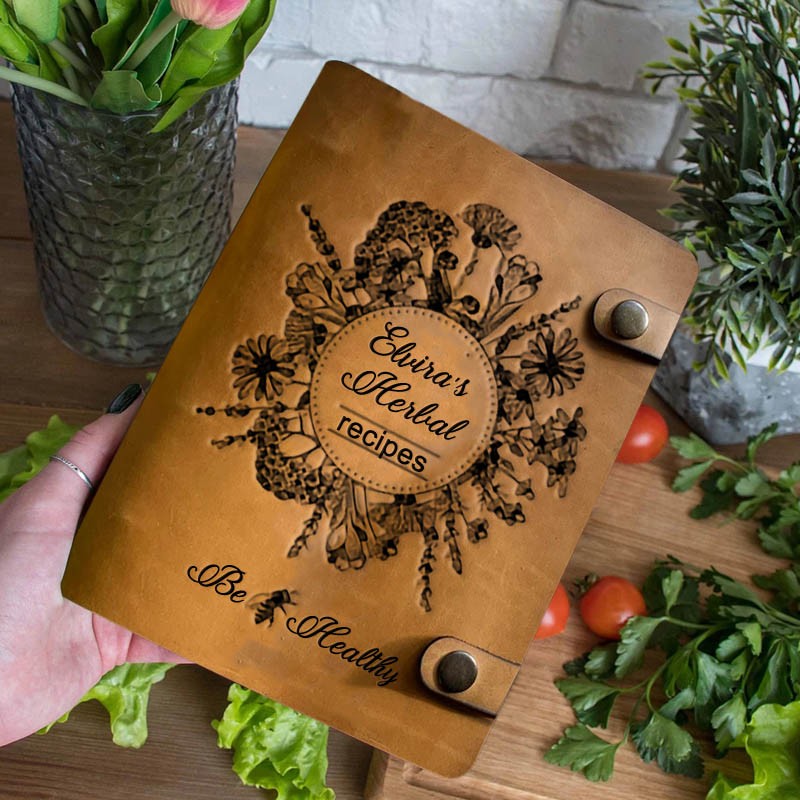 Elvira's
Herbal
recipes
Be
Healthy